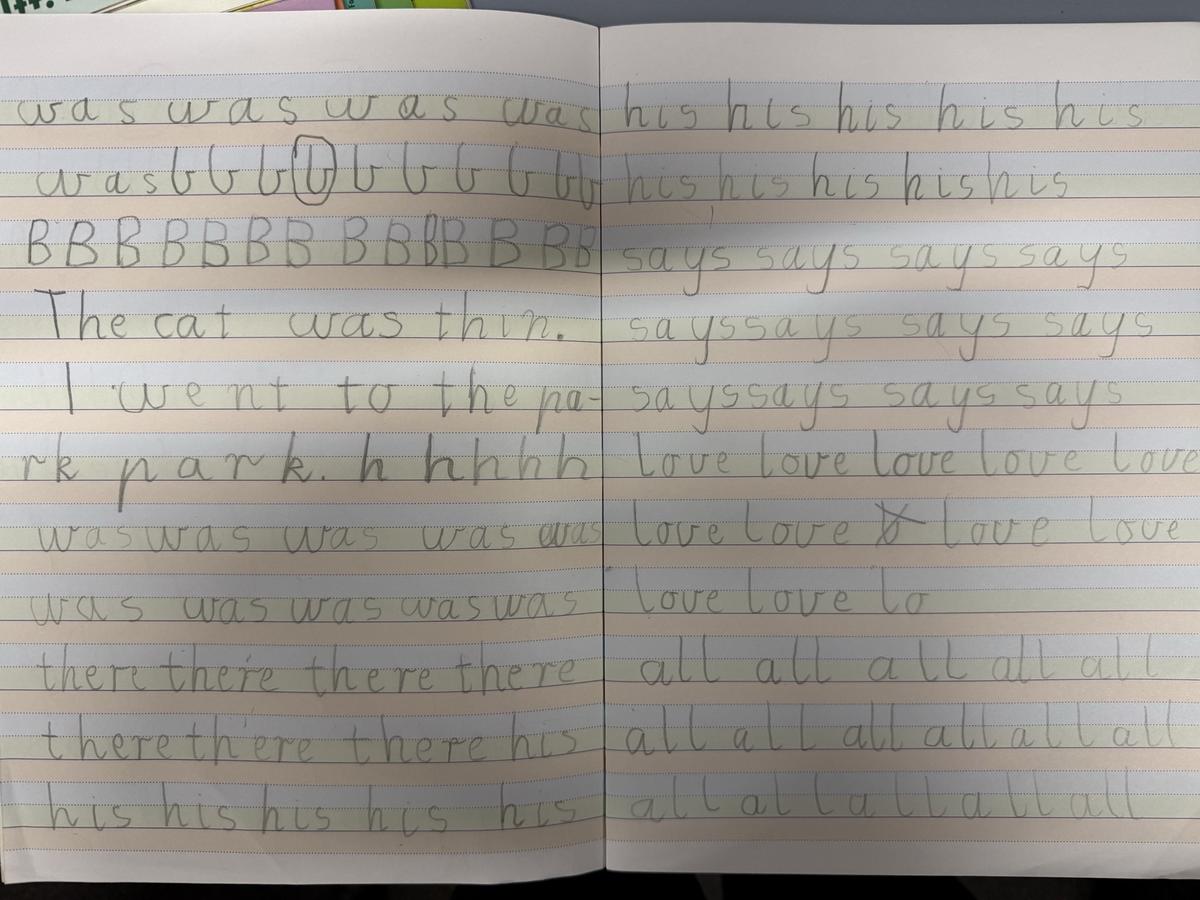 was was was was
was b b b b b b b b b b
B B B B B B B B B B B B B B
The cat was thin.
I went to the pa-
rk park. h h h h h
was was was was was
was was was was was
there there there there
there there there his
his his his his his
his his his his his
his his his his his
says says says says
says says says says
says says says says
love love love love love
love love love love
love love lo
all all all all all
all all all all all all
all all all all all